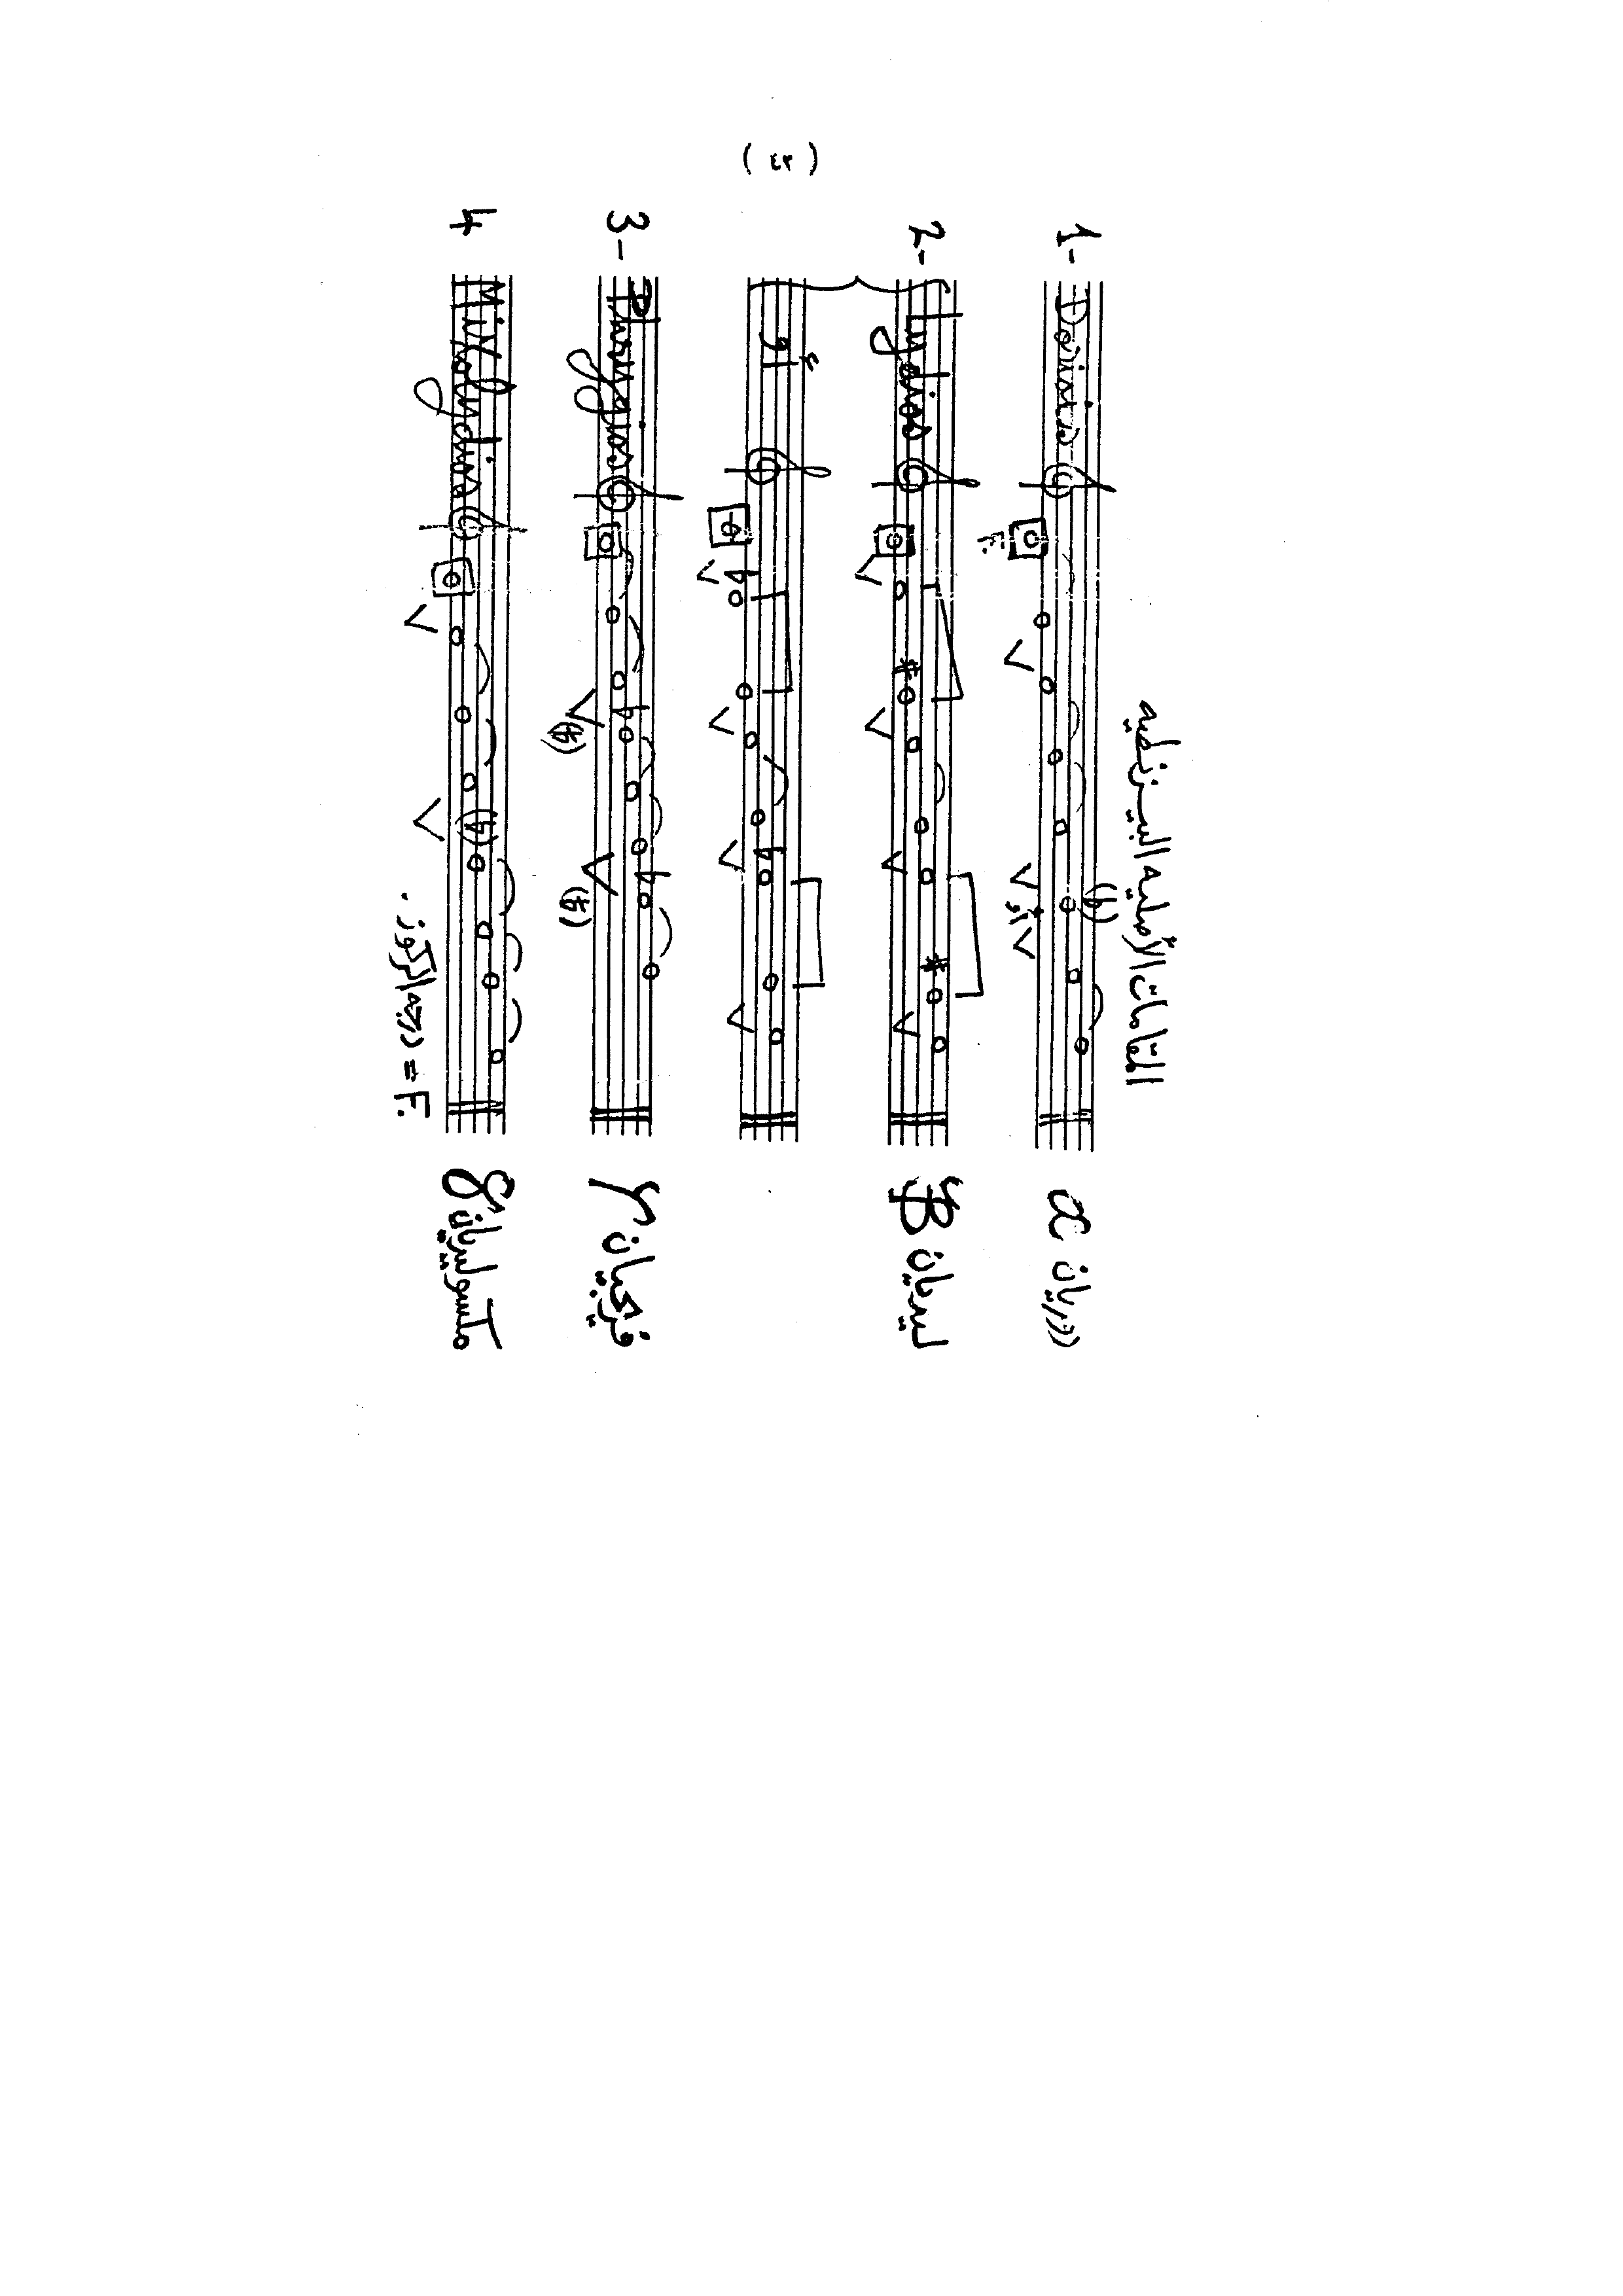 ( ٤٢ )
المقامات الأصليه البيـزنطيه
1- Dorios F. (b) أو α دوريان
2- Lydios β ليديان
أو
3- Phrygios γ فريجيان
4 Mixolydios δ مكسوليديان
F. = درجه الركوز .